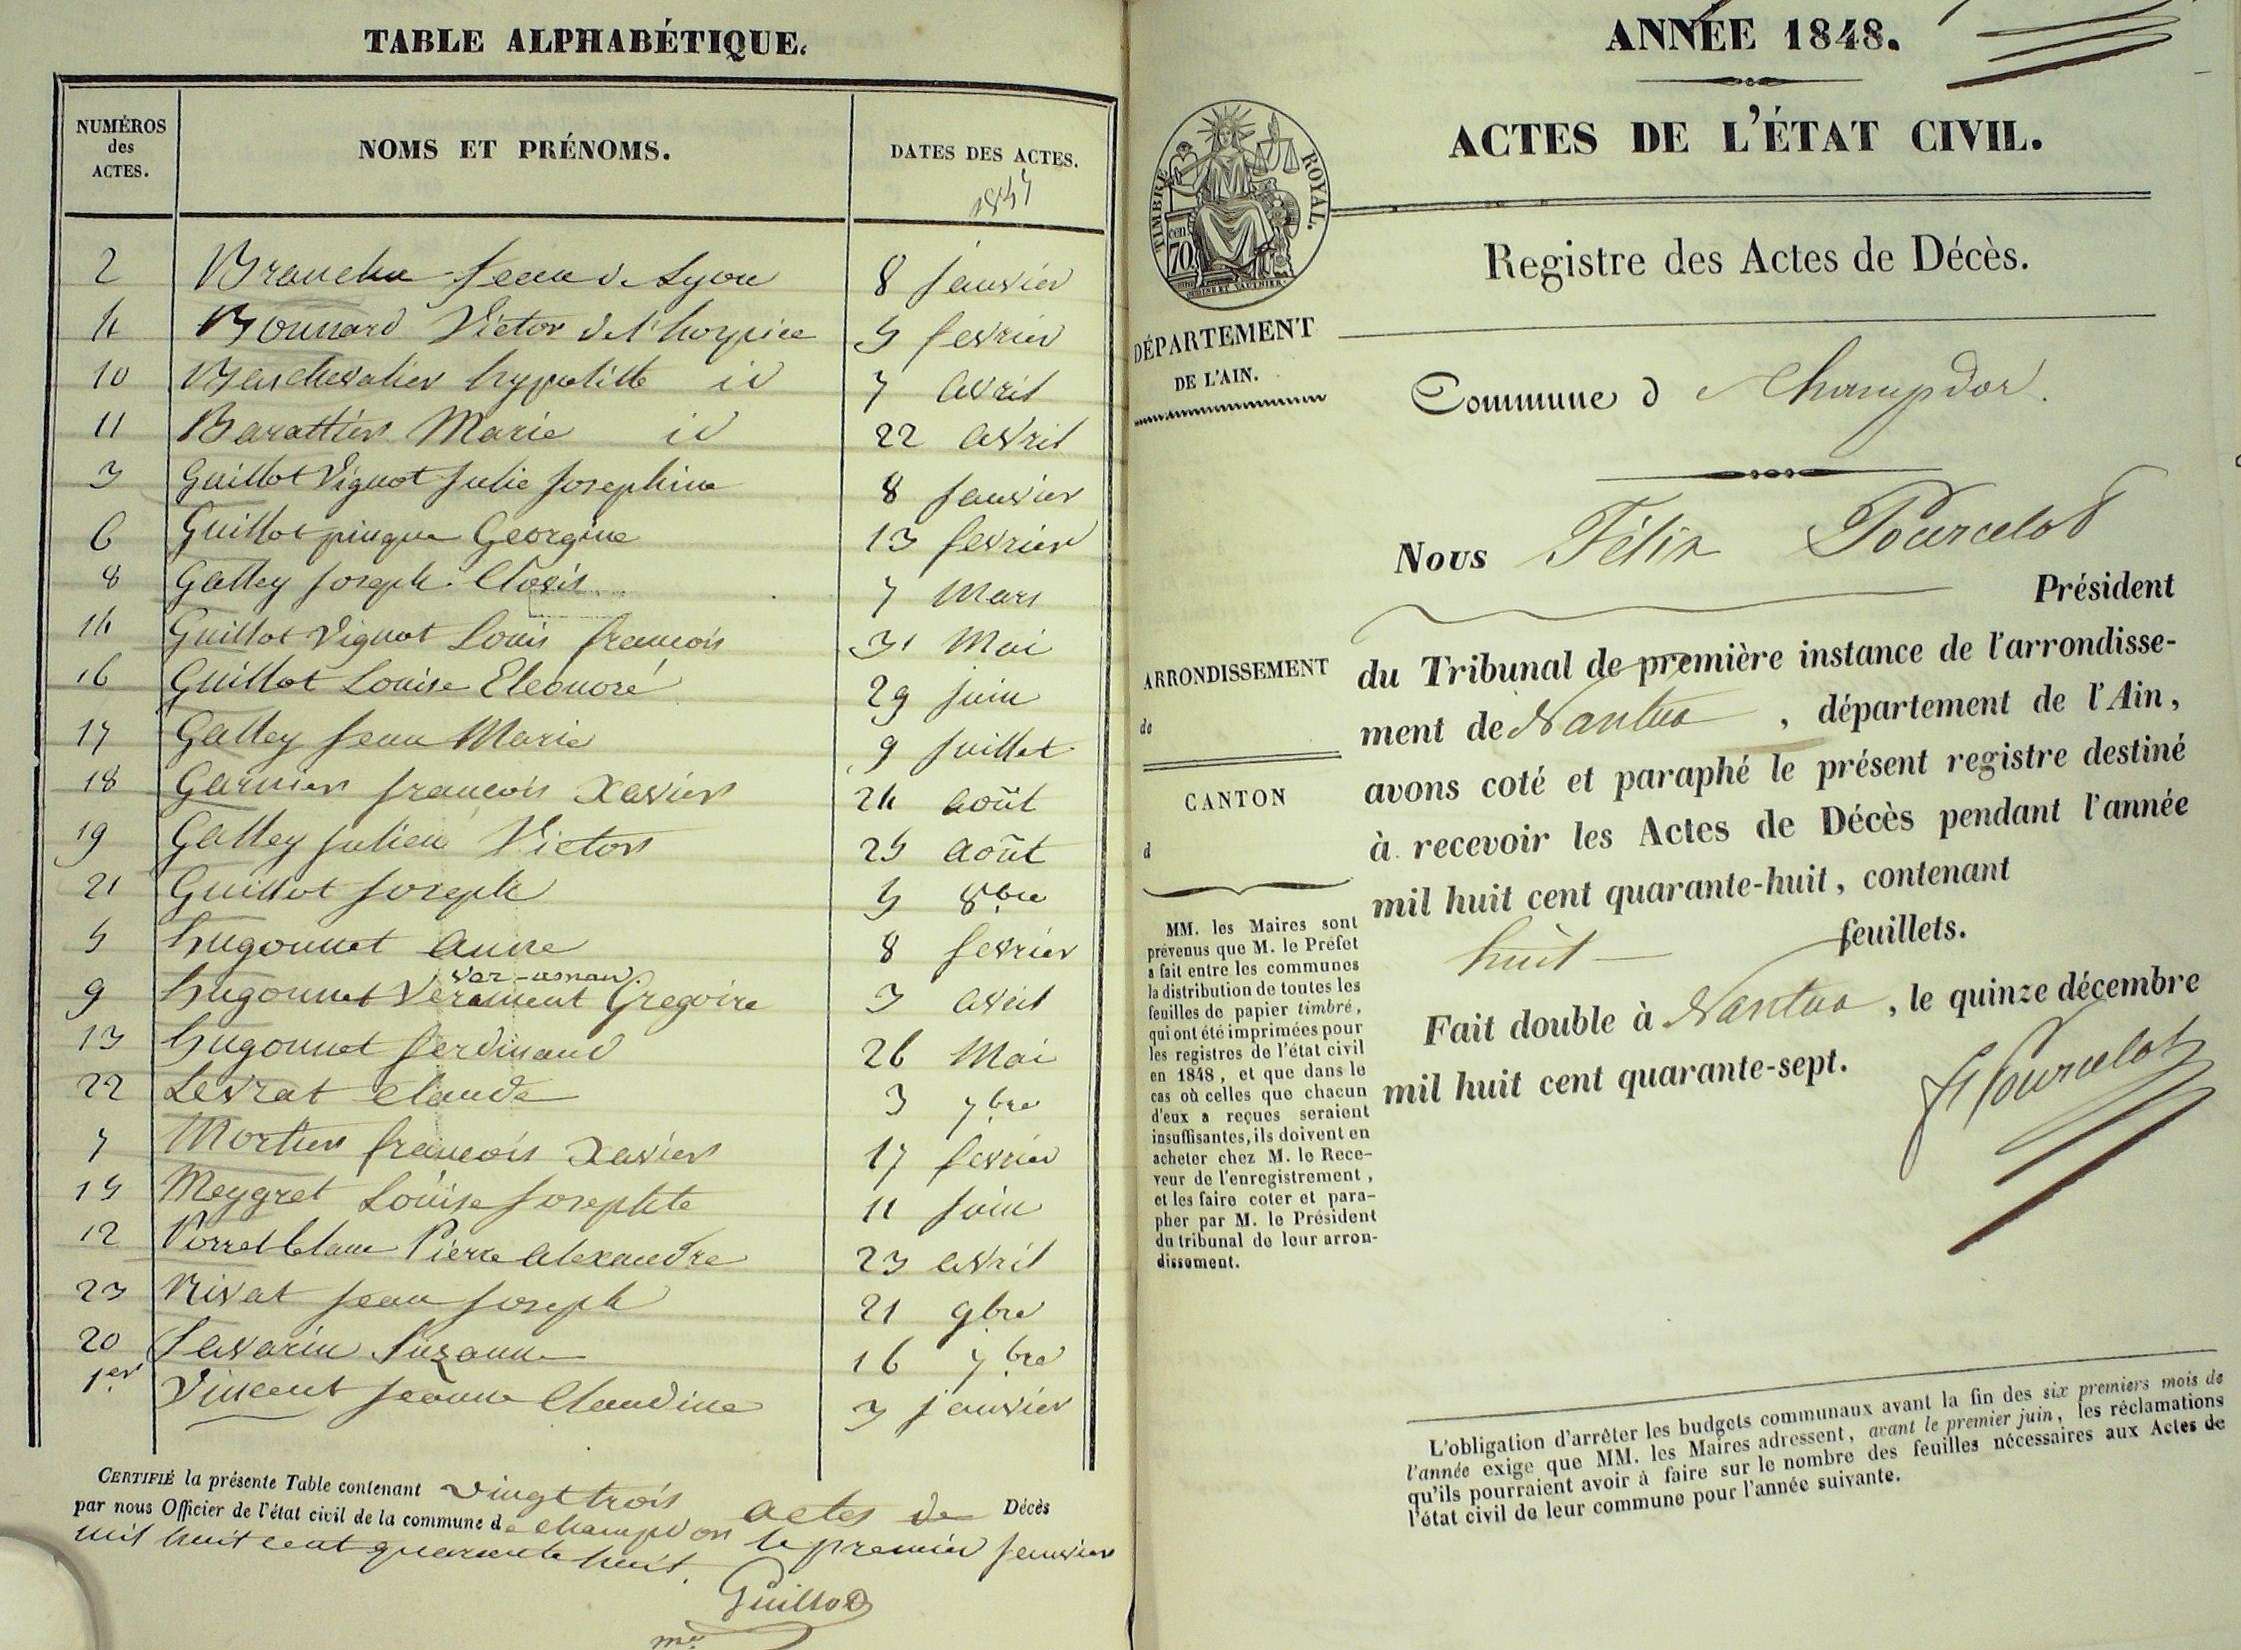 TABLE ALPHABÉTIQUE.
NUMÉROS des ACTES.
NOMS ET PRÉNOMS.
DATES DES ACTES.
1847
2 Jean de Lyon 8 janvier
4 Bonnard Victor de l'hospice 5 fevrier
10 hypolitte id 7 avril
11 Marie id 22 avril
3 Guillot Vignot Julie Josephine 8 janvier
6 Guillot Georgine 13 fevrier
8 Galley Joseph Clovis 7 Mars
14 Guillot Vignot Louis françois 31 Mai
16 Guillot Louise Eleonore 29 juin
17 Galley Jean Marie 9 juillet
18 Garnier françois Xavier 24 août
19 Galley Julien Victor 25 août
21 Guillot Joseph 5 8bre
5 hugonnet anne 8 fevrier
9 hugonnet Gregoire 3 avril
13 hugonnet ferdinand 26 Mai
22 Levrat Claude 3 7bre
7 Mortier françois Xavier 17 fevrier
15 Meygret Louise Josephte 11 juin
12 Pierre Alexandre 23 avril
23 Rivat Jean Joseph 21 9bre
20 Savarin Suzanne 16 7bre
1er Vincent Jeanne Claudine 3 janvier
CERTIFIÉ la présente Table contenant vingt trois actes de Décès
par nous Officier de l'état civil de la commune de Champdor le premier janvier
mil huit cent quarante huit.
Guillot
mre
ANNÉE 1848.
ACTES DE L'ÉTAT CIVIL.
TIMBRE ROYAL.
cen 70
Registre des Actes de Décès.
DÉPARTEMENT
DE L'AIN.
Commune d Champdor.
Nous Félix Pourcelot
Président
du Tribunal de première instance de l'arrondisse-
ment de Nantua, département de l'Ain,
avons coté et paraphé le présent registre destiné
à recevoir les Actes de Décès pendant l'année
mil huit cent quarante-huit, contenant
huit feuillets.
Fait double à Nantua, le quinze décembre
mil huit cent quarante-sept.
F Pourcelot
ARRONDISSEMENT
de
CANTON
d
MM. les Maires sont
prévenus que M. le Préfet
a fait entre les communes
la distribution de toutes les
feuilles de papier timbré,
qui ont été imprimées pour
les registres de l'état civil
en 1848, et que dans le
cas où celles que chacun
d'eux a reçues seraient
insuffisantes, ils doivent en
acheter chez M. le Rece-
veur de l'enregistrement,
et les faire coter et para-
pher par M. le Président
du tribunal de leur arron-
dissement.
L'obligation d'arrêter les budgets communaux avant la fin des six premiers mois de
l'année exige que MM. les Maires adressent, avant le premier juin, les réclamations
qu'ils pourraient avoir à faire sur le nombre des feuilles nécessaires aux Actes de
l'état civil de leur commune pour l'année suivante.